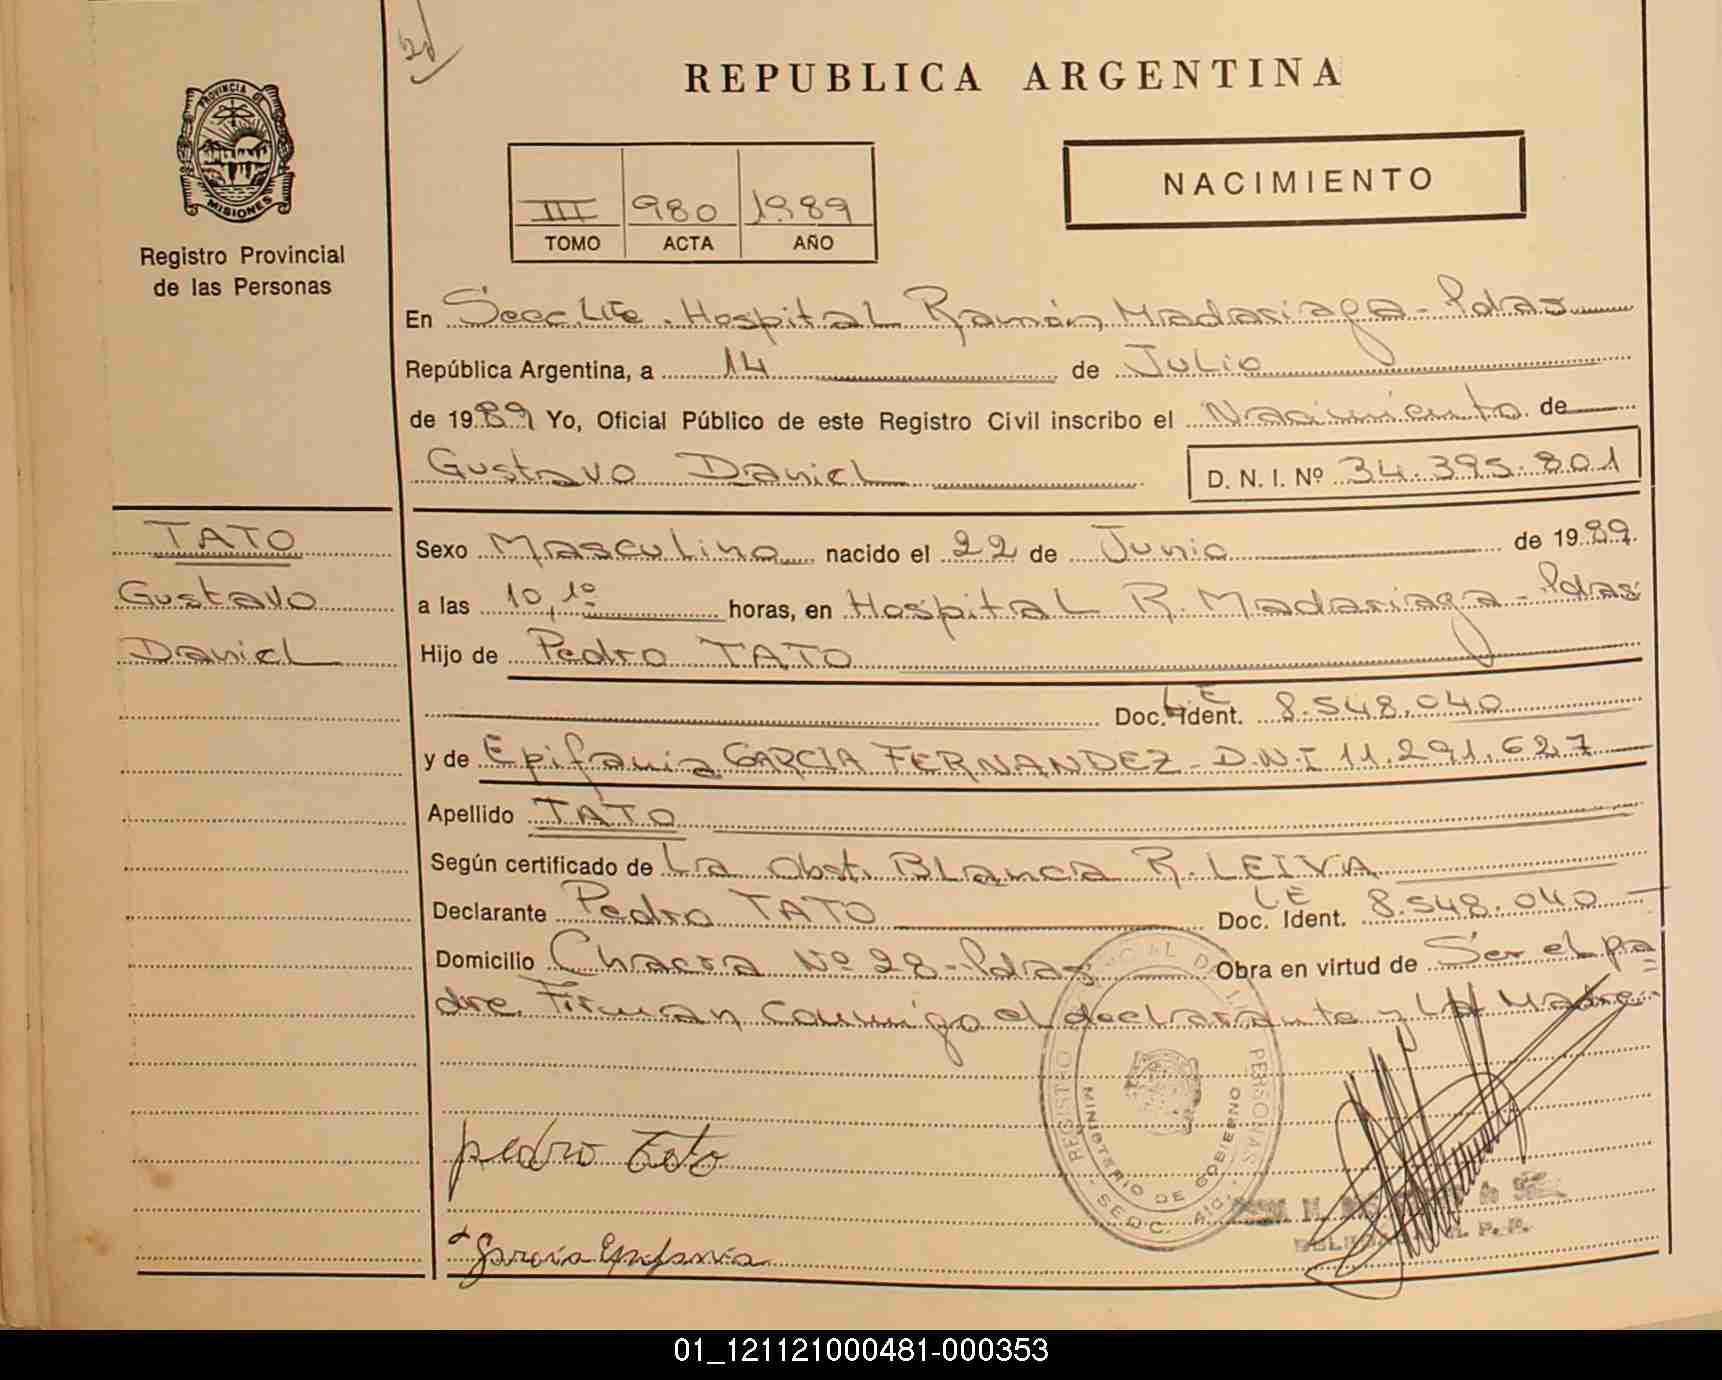 2d
PROVINCIA DE
MISIONES
Registro Provincial
de las Personas
REPUBLICA ARGENTINA
III 980 1989
TOMO ACTA AÑO
NACIMIENTO
En Secc. Lte. Hospital Ramón Madariaga - Pdas
República Argentina, a 14 de Julio
de 1989 Yo, Oficial Público de este Registro Civil inscribo el Nacimiento de
Gustavo Daniel D. N. I. Nº 34.395.801
TATO
Gustavo
Daniel
Sexo Masculino nacido el 22 de Junio de 1989.
a las 10,10 horas, en Hospital R. Madariaga - Pdas
Hijo de Pedro TATO
Doc. Ident. LE 8.548.040
y de Epifania GARCIA FERNANDEZ - D.N.I 11.291.627
Apellido TATO
Según certificado de La Obst. Blanca R. LEIVA
Declarante Pedro TATO Doc. Ident. LE 8.548.040
Domicilio Chacra Nº 28 - Pdas Obra en virtud de Ser el pa
dre. Firman conmigo el declarante y LA Madre
pedro tato
García Epifania
REGISTRO PERSONAS
MINISTERIO DE GOBIERNO
01_121121000481-000353